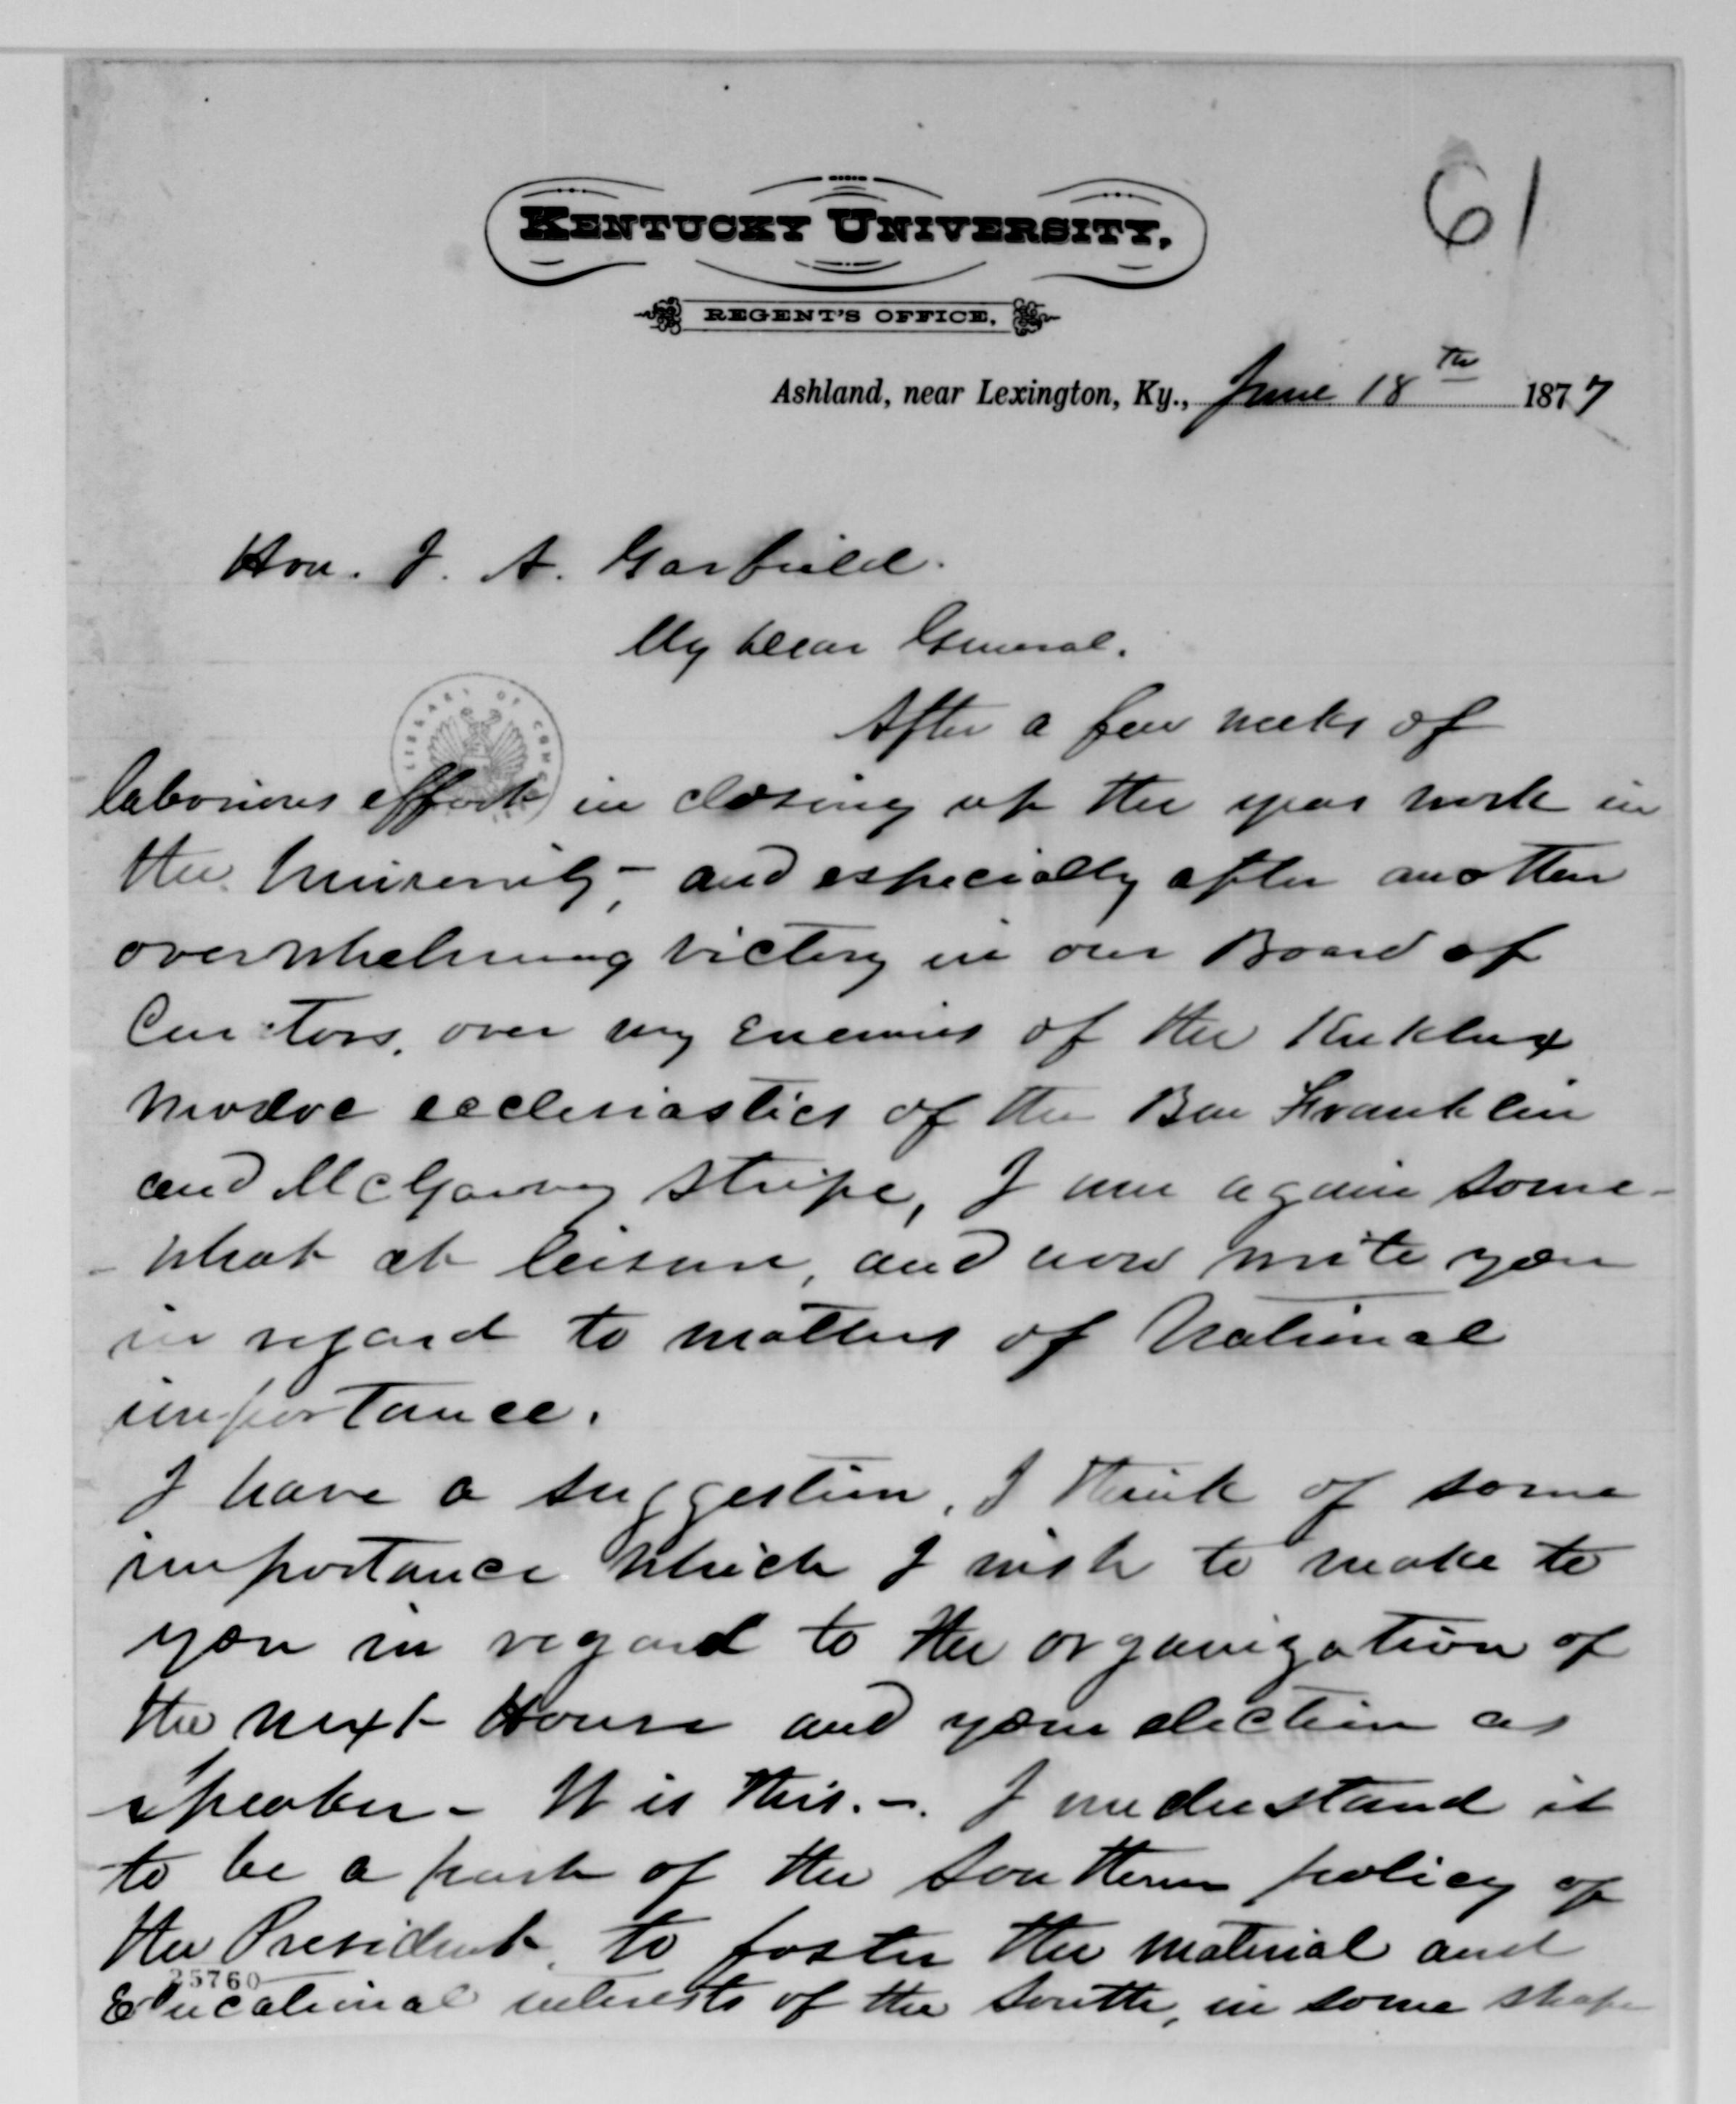 61
KENTUCKY UNIVERSITY,
REGENT'S OFFICE,
Ashland, near Lexington, Ky., June 18th 1877
Hon. J. A. Garfield.
My Dear General.
After a few weeks of
laborious effort in closing up the years work in
the University,- and especially after another
overwhelming victory in our Board of
Curators, over my enemies of the Kuklux
Modoc ecclesiastics of the Ben Franklin
and McGarvey stripe, I am again some-
-what at leisure, and now write you
in regard to matters of National
importance.
I have a suggestion, I think of some
importance which I wish to make to
you in regard to the organization of
the next House and your election as
speaker - It is this. -. I understand it
to be a part of the Southern policy of
the President, to foster the material and
Educational interests of the South, in some shape
25760
LIBRARY OF CONG